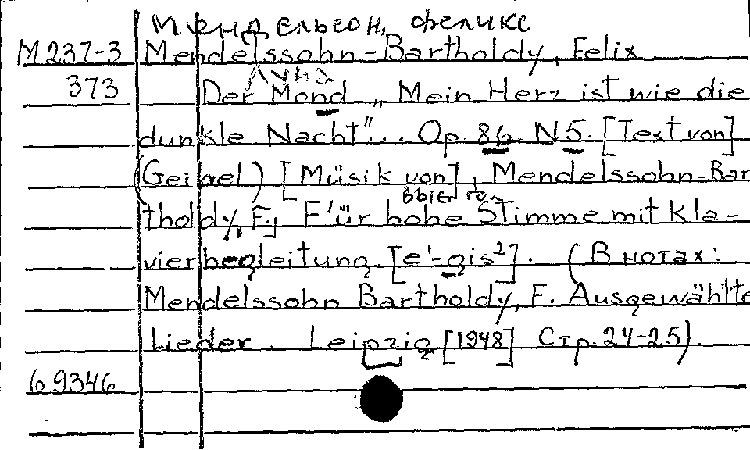 Мендельсон, Феликс
М237-3 Mendelssohn-Bartholdy, Felix
Луна
373 Der Mond „Mein Herz ist wie die
dunkle Nacht“... Op. 86. N5. [Text von]
(Geibel) [Müsik von] Mendelssohn-Bar
tholdy, F., F'ür hohe Stimme mit Kla-
vierbegleitung. [e'-gis²]. (В нотах:
Mendelssohn Bartholdy, F. Ausgewählte
Lieder. Leipzig [1948] Стр. 24-25).
69346